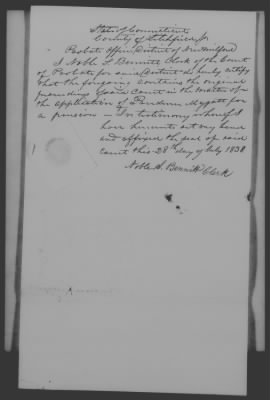 State of Connecticut
County of Litchfield Jr
Probate Office, District of New Milford
I Noble S. Bennitt Clerk of the Court
of Probate for said District do hereby certify
that the foregoing contains the original
proceedings of said Court in the matter of
the application of Mygatt for
a pension — In testimony whereof I
have hereunto set my hand
and affixed the seal of said
Court this 28th day of July 1838
Noble S. Bennitt Clerk